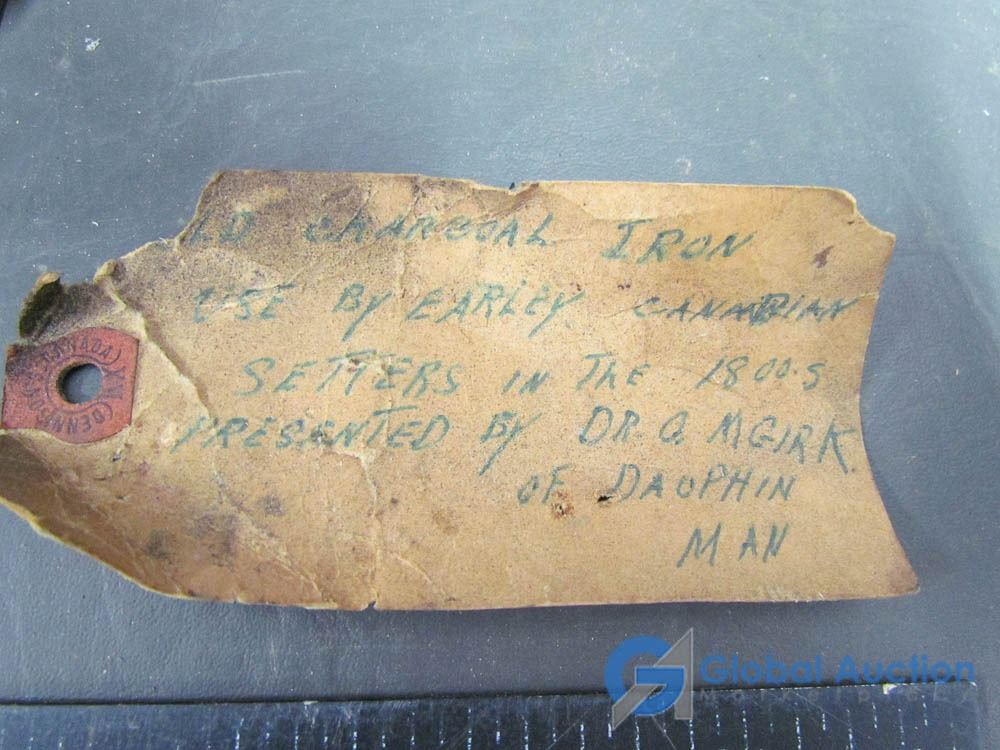 LD CHARCOAL IRON
USE BY EARLEY CANADIAN
SETTERS IN THE 1800.S
PRESENTED BY DR. G. MGIRK
OF DAUPHIN
MAN
Global Auction